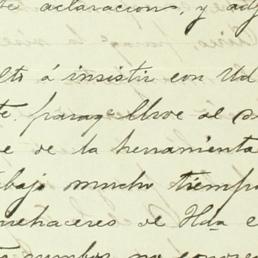 te aclaracion, y adj
lto á insistir con Ud
te, paraqe lleve al d
e de la herramienta
abajo mucho tiempo
uehaceres de Hda e